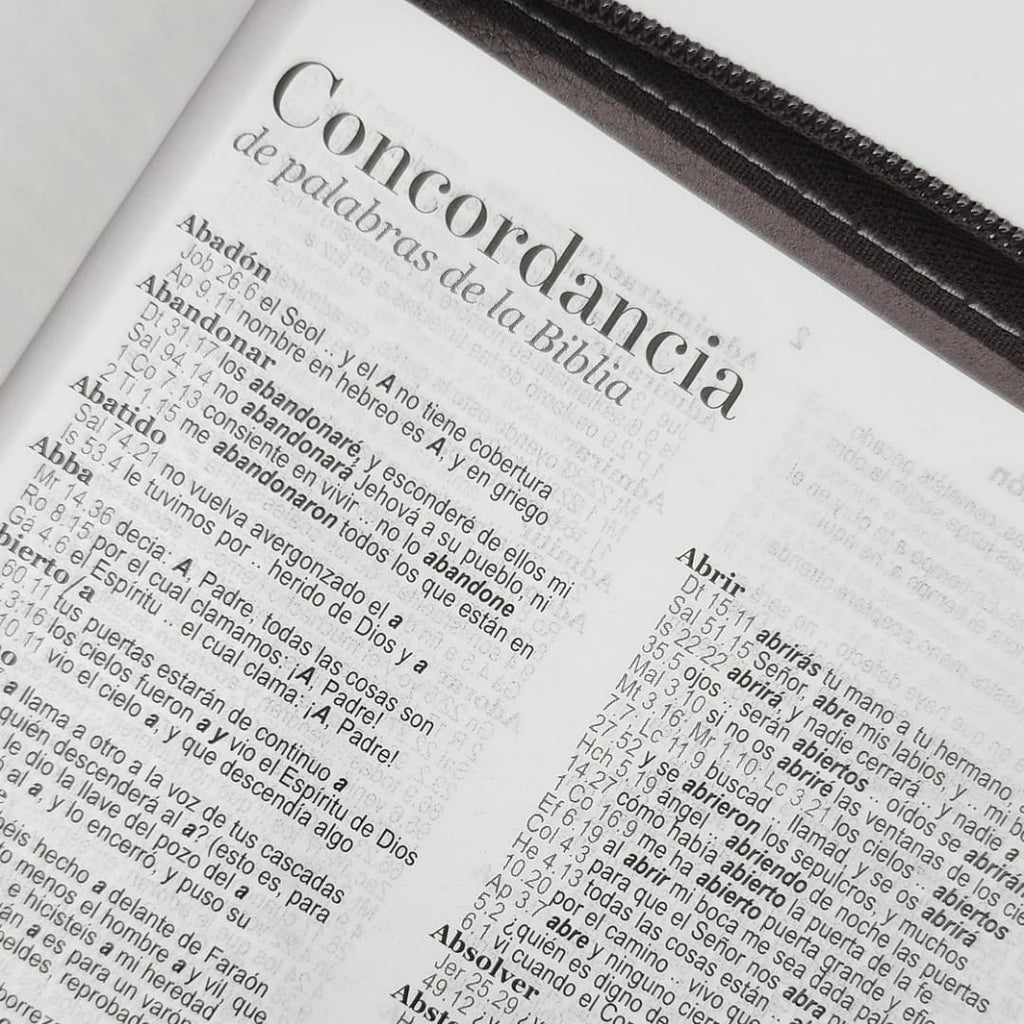 Concordancia
de palabras de la Biblia
Abadón
Job 26.6 el Seol .. y el A no tiene cobertura
Ap 9.11 nombre en hebreo es A, y en griego
Abandonar
Dt 31.17 los abandonaré, y esconderé de ellos mi
Sal 94.14 no abandonará Jehová a su pueblo, ni
1 Co 7.13 consiente en vivir .. no lo abandone
2 Ti 1.15 me abandonaron todos los que están en
Abatido
Sal 74.21 no vuelva avergonzado el a
Is 53.4 le tuvimos por .. herido de Dios y a
Abba
Mr 14.36 decía: A, Padre, todas las cosas son
Ro 8.15 por el cual clamamos: ¡A, Padre!
Gá 4.6 el Espíritu .. el cual clama: ¡A, Padre!
bierto/a
60.11 tus puertas estarán de continuo a
3.16 los cielos fueron a y vio el Espíritu de Dios
10.11 vio el cielo a, y que descendía algo
o
a llama a otro a la voz de tus cascadas
quién descenderá al a? (esto es, para
le dio la llave del pozo del a
al a, y lo encerró, y puso su
béis hecho a delante de Faraón
o menos el hombre a y vil que
e hicisteis a mi heredad
án a es para un varón
beldes, reprobado
borrez
Abrir
Dt 15.11 abrirás tu mano a tu hermano
Sal 51.15 Señor, abre mis labios, y
Is 22.22 abrirá, y nadie cerrará .. y nadie a
35.5 ojos .. serán abiertos .. oídos se abrirán
Mal 3.10 si no os abriré las ventanas de los cie
Mt 3.16; Mr 1.10; Lc 3.21 los cielos .. abiertos
7.7; Lc 11.9 buscad .. llamad, y se os abrirá
27.52 y se abrieron los sepulcros, y muchos
Hch 5.19 ángel .. abriendo de noche las puertas
14.27 cómo había abierto la puerta de la fe
1 Co 16.9 me ha abierto puerta grande y efi
Ef 6.19 al abrir mi boca me sea dada pal
Col 4.3 para que el Señor nos abra
He 4.13 todas las cosas están
10.20 por el camino .. vivo que
Ap 3.7 abre y ninguno cier
5.2 ¿quién es digno de
6.1 vi cuando el Cor
Absolver
Jer 25.29 ¿v
49.12 ¿v
Abste